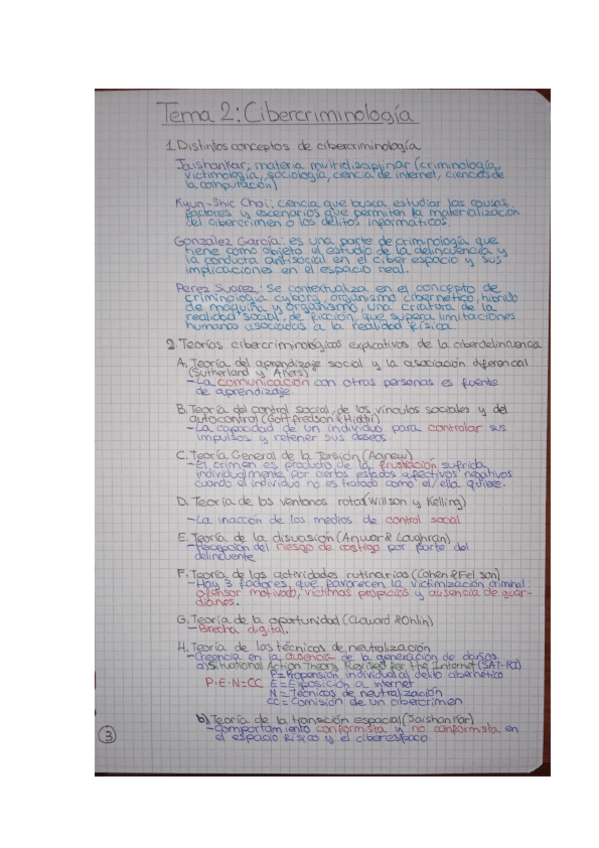 Tema 2: Cibercriminología
1. Distintos conceptos de cibercriminología
Jaishankar: materia multidisciplinar (criminología,
victimología, sociología, ciencia de internet, ciencias de
la computación)
Kyun-Shic Choi: ciencia que busca estudiar las causas,
factores y escenarios que permiten la materialización
del cibercrimen o los delitos informáticos.
González García: es una parte de criminología que
tiene como objeto el estudio de la delincuencia y
la conducta antisocial en el ciber espacio y sus
implicaciones en el espacio real.
Perez Suarez: Se contextualiza en el concepto de
criminología cyborg, organismo cibernetico, hibrido
de maquina y organismo, una criatura de la
realidad social, de ficción, que supera limitaciones
humanas asociadas a la realidad física.
2. Teorías cibercriminológicas explicativas de la ciberdelincuencia
A. Teoría del aprendizaje social y la asociación diferencial
(Sutherland y Akers)
-La comunicación con otras personas es fuente
de aprendizaje.
B. Teoría del control social, de los vínculos sociales y del
autocontrol (Gottfredson & Hirschi)
-La capacidad de un individuo para controlar sus
impulsos y retener sus deseos.
C. Teoría General de la Torsión (Agnew)
-El crimen es producto de la frustación sufrida
individualmente por ciertos estados afectivos negativos
cuando el individuo no es tratado como él/ella quiere.
D. Teoría de las ventanas rotas (Willson y Kelling)
-La inacción de los medios de control social
E. Teoría de la disuasión (Anwar & Loughran)
-Percepción del riesgo de castigo por parte del
delincuente
F. Teoría de las actividades rutinarias (Cohen & Felson)
-Hay 3 factores, que favorecen la victimización criminal
ofensor motivado, víctimas propicias y ausencia de guar-
dianes.
G. Teoría de la oportunidad (Cloward & Ohlin)
-Brecha digital.
H. Teoría de las técnicas de neutralización
-Creencia en la ausencia de la generación de daños
a) Situational Action Theory Revised for the Internet (SAT-RI)
P=Propensión individual al delito cibernético
P·E·N=CC E=Exposición a internet
N=Técnicas de neutralización
CC=Comisión de un cibercrimen
b) Teoría de la transición espacial (Jaishankar)
-Comportamiento conformista y no conformista en
el espacio físico y el ciberespacio.
3